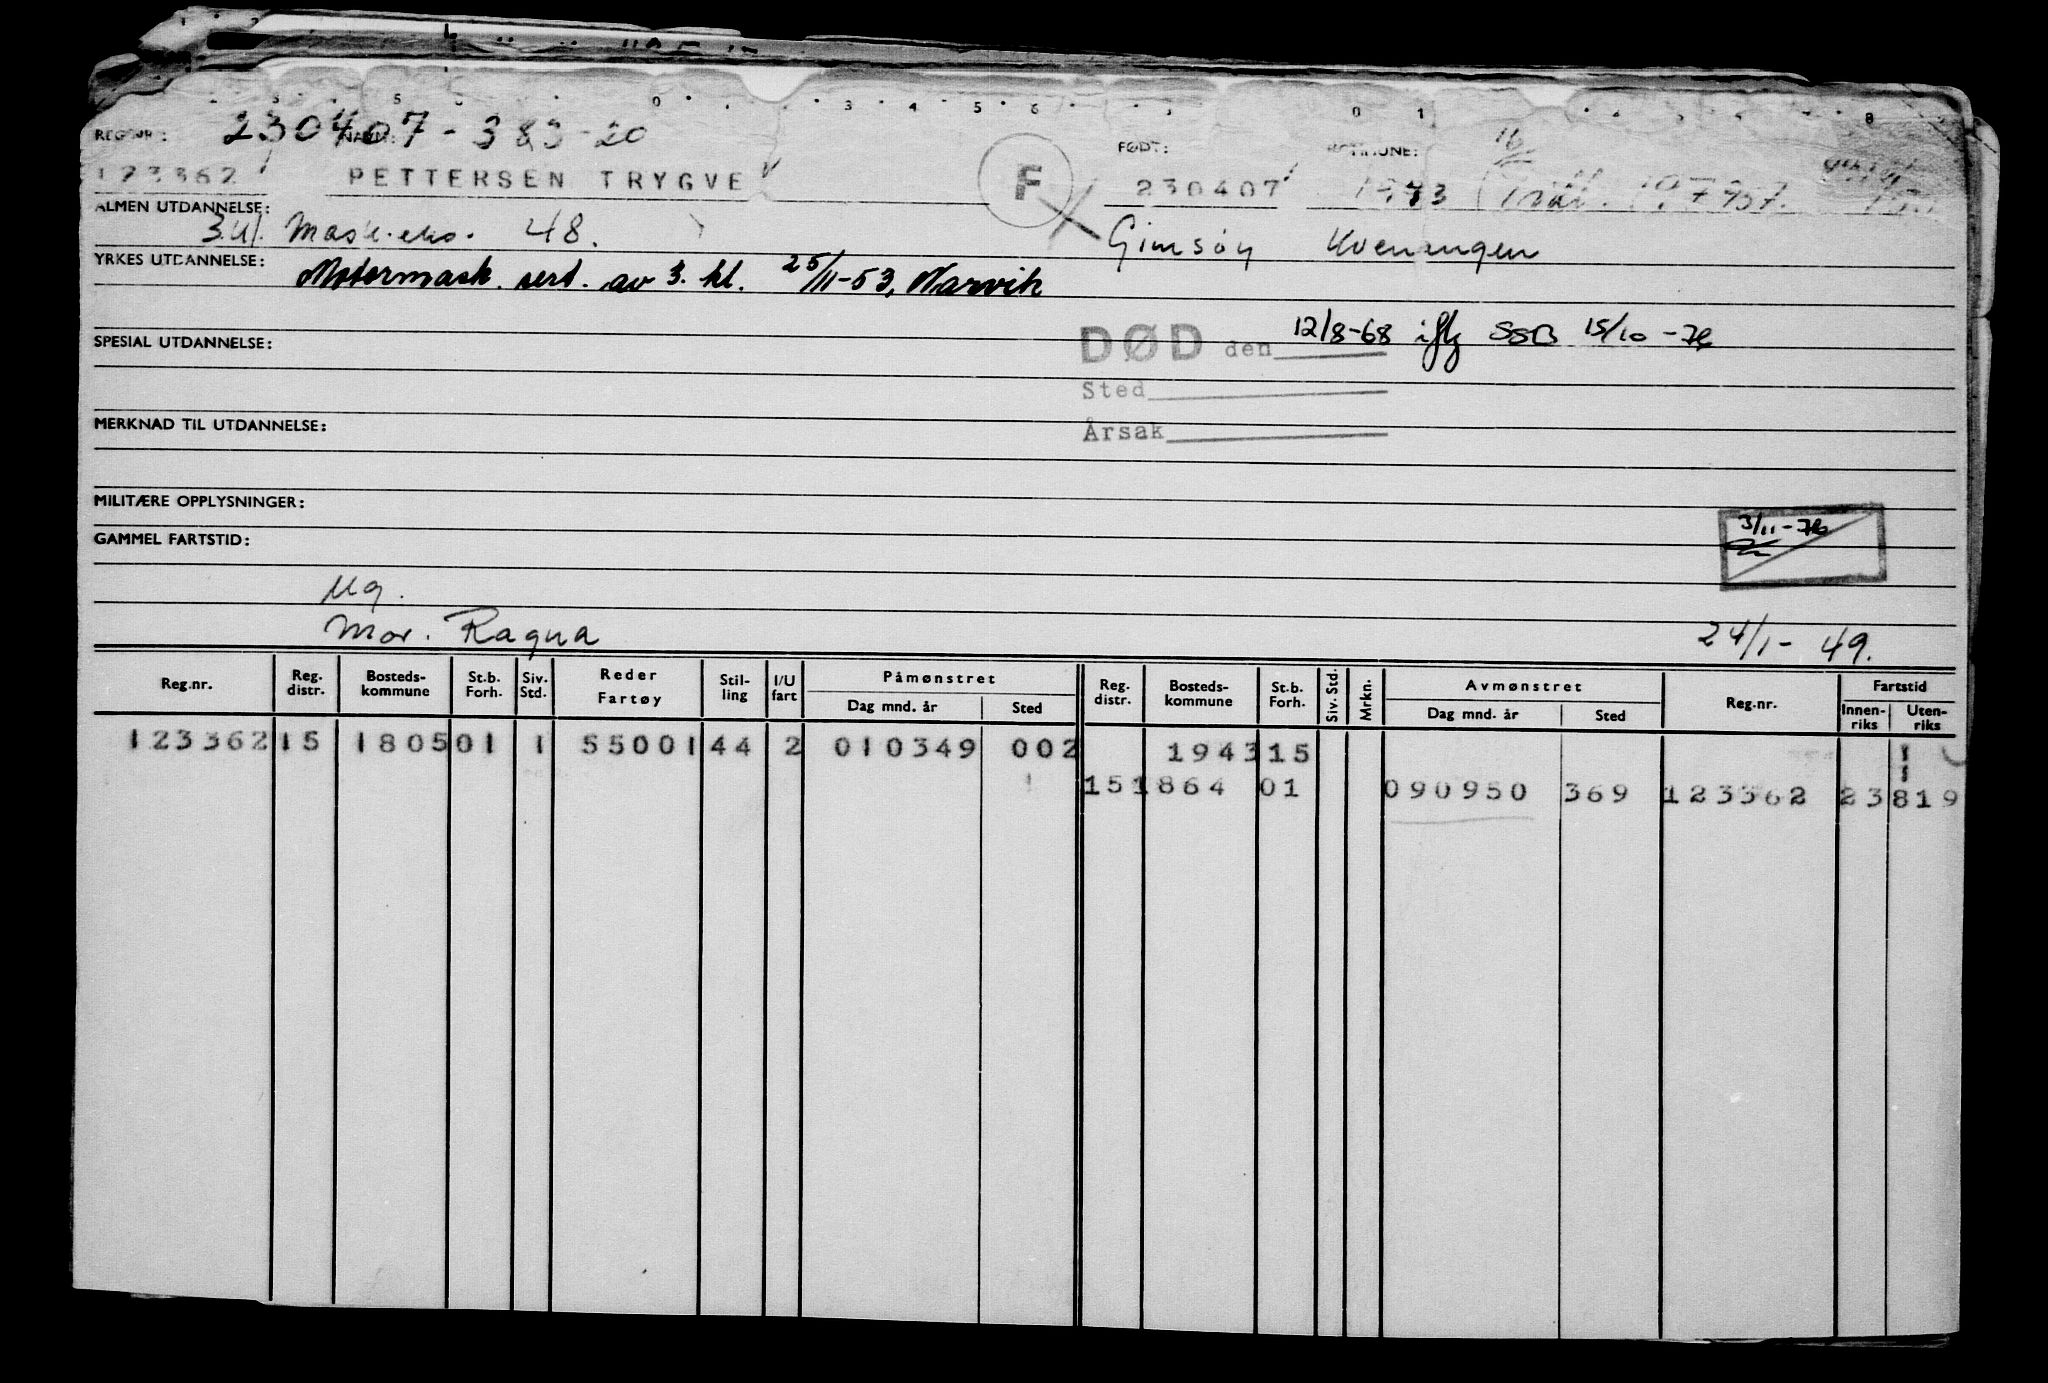 REG.NR: 230407-383-20 NAVN: FØDT: KOMMUNE: 16
123362 PETTERSEN TRYGVE F 230407 1943
ALMEN UTDANNELSE: 3.kl. Mask.eks. 48. Gimsøy Kvenangen
YRKES UTDANNELSE: Motormask. sert. av 3. kl. 25/11-53, Narvik
SPESIAL UTDANNELSE: DØD den 12/8-68 iflg SSB 15/10-76
Sted
MERKNAD TIL UTDANNELSE: Årsak
MILITÆRE OPPLYSNINGER:
3/11-76
GAMMEL FARTSTID:
Ug.
Mor. Ragna 24/1-49.
Reg.nr. Reg. distr. Bosteds-kommune St.b. Forh. Siv. Std. Reder Fartøy Stil-ling I/U fart Påmønstret Dag mnd. år Sted Reg. distr. Bosteds-kommune St.b. Forh. Siv. Std. Mrkn. Avmønstret Dag mnd. år Sted Reg.nr. Fartstid Innen-riks Uten-riks
123362 15 1805 01 1 55001 44 2 010349 002 1943 15
15 1864 01 090950 369 123362 23 819